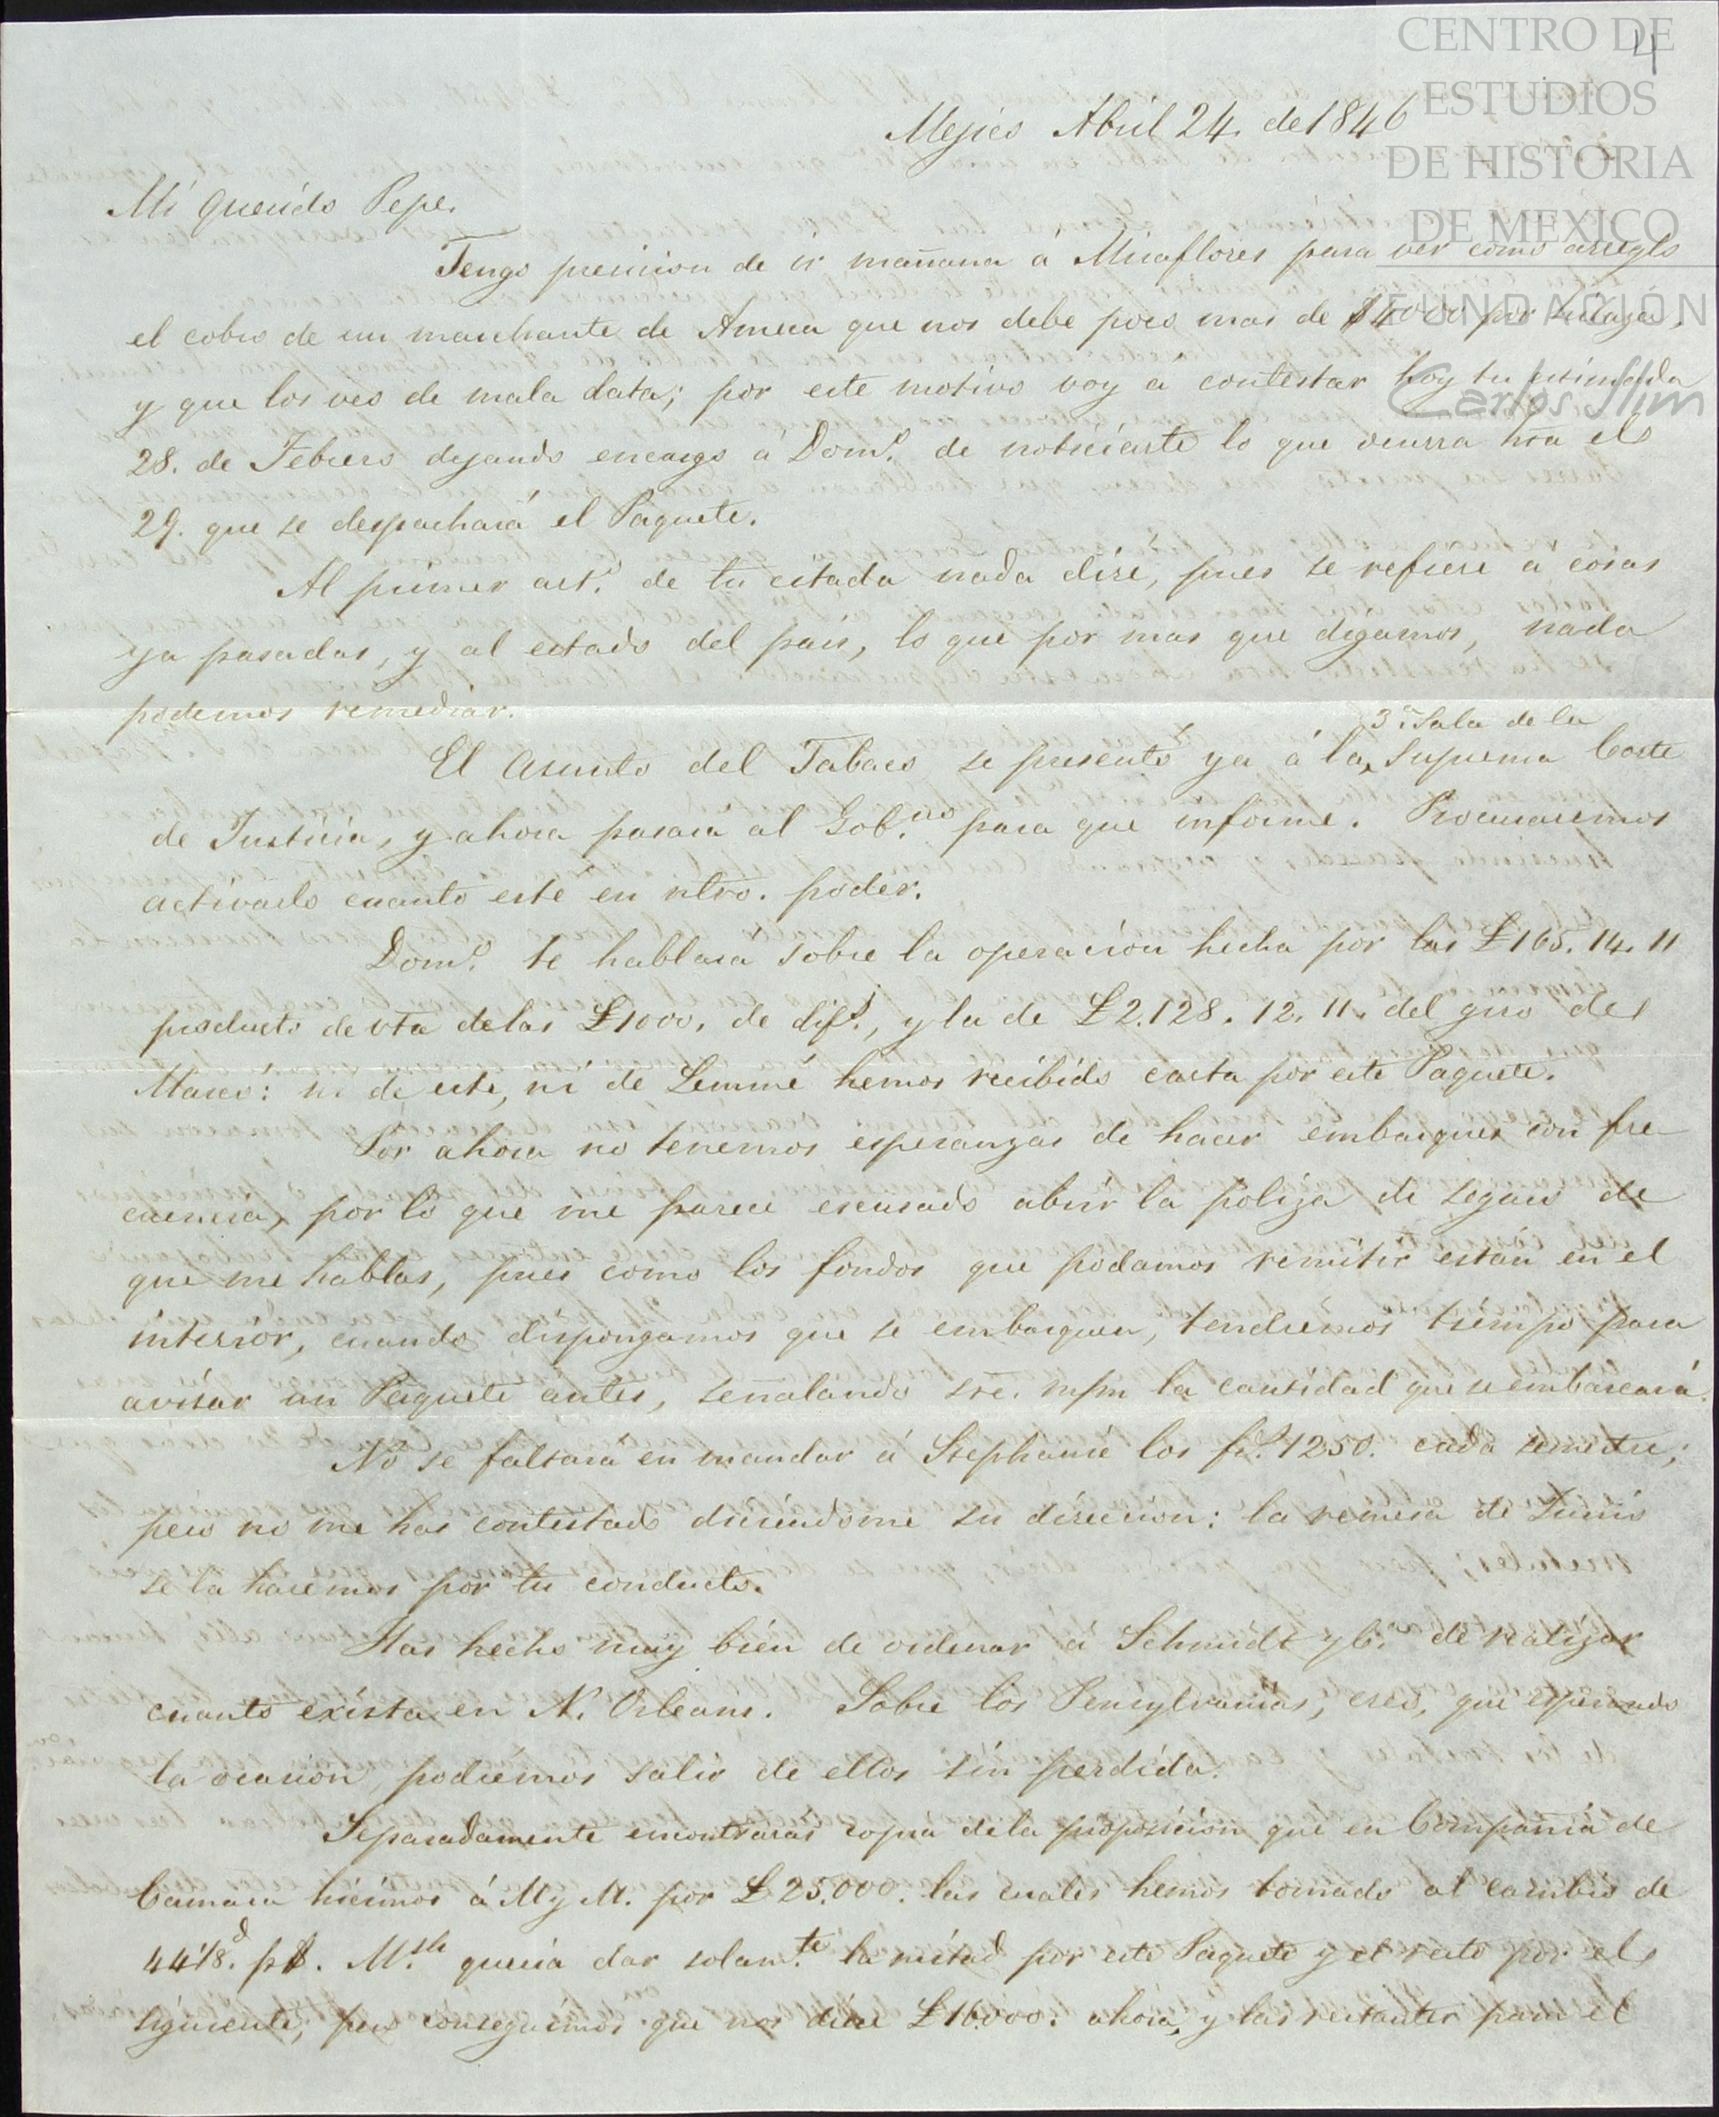 CENTRO DE
ESTUDIOS
DE HISTORIA
DE MEXICO
FUNDACIÓN
Carlos Slim
4
Mejico Abril 24. de 1846
Mi querido Pepe.
Tengo precicion de ir mañana á Miraflores para ver como arreglo
el cobro de un marchante de Ameca que nos debe poco mas de $4000 por
y que los veo de mala data; por este motivo voy a contestar hoy tu estimada
28. de Febrero dejando encargo á Dom.º de noticiarte lo que ocurra hta el
29. que se despachará el Paquete.
Al primer art.º de tu citada nada diré, pues se refiere a cosas
ya pasadas, y al estado del pais, lo que por mas que digamos, nada
podemos remediar.
El asunto del Tabaco se presentó ya á la 3.ª Sala de la Suprema Corte
de Justicia, y ahora pasará al Gob.rno para que informe. Procuraremos
activarlo cuanto esté en ntro. poder.
Dom.º te hablará sobre la operacion hecha por las £165.14.11
producto de vta de las £1000. de dif.s, y la de £2.128.12.11. del giro de
Marcó: ni de este, ni de Lemmé hemos recibido carta por este Paquete.
Por ahora no tenemos esperanzas de hacer embarques con fre-
cuencia, por lo que me parece escusado abrir la poliza de seguro de
que me hablas, pues como los fondos que podamos remitir estan en el
interior, cuando dispongamos que se embarquen, tendremos tiempo para
avisar un Paquete antes, señalando sre. mpm la cantidad que se embarcará.
No se faltará en mandar á Stephanie los fr.s 1250. cada semestre;
pero no me has contestado diciendome su direccion: la remesa de Junio
se la haremos por tu conducto.
Has hecho muy bien de ordenar á Schmidt y C.ª de realizar
cuanto exista en N. Orleans. Sobre los Pensylvanias, creo, que esperando
la ocasion, podremos salir de ellos sin perdida.
Separadamente encontrarás copia de la proposicion que en Compañia de
Camara hicimos á M y M. por £25.000. las cuales hemos tomado al cambio de
44 1/8.d p$. M.sh queria dar solam.te la mitad por este Paquete y el resto por el
siguiente, pero conseguimos que nos diese £16.000. ahora, y las restantes para el